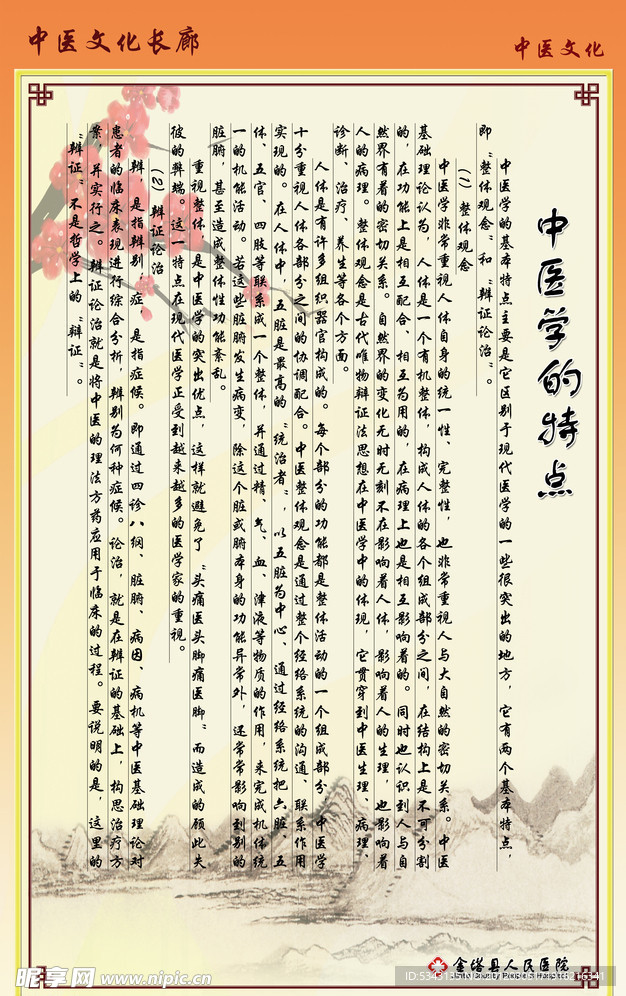 中医文化长廊
中医文化
中医学的特点
中医学的基本特点主要是它区别于现代医学的一些很突出的地方，它有两个基本特点，
即“整体观念”和“辩证论治”。
（一）整体观念
中医学非常重视人体自身的统一性、完整性，也非常重视人与大自然的密切关系。中医
基础理论认为，人体是一个有机整体，构成人体的各个组成部分之间，在结构上是不可分割
的，在功能上是相互配合、相互为用的，在病理上也是相互影响着的。同时也认识到人与自
然界有着的密切关系。自然界的变化无时无刻不在影响着人体，影响着人的生理，也影响着
人的病理。整体观念是古代唯物辩证法思想在中医学中的体现，它贯穿到中医生理、病理、
诊断、治疗、养生等各个方面。
人体是有许多组织器官构成的。每个部分的功能都是整体活动的一个组成部分，中医学
十分重视人体各部分之间的协调配合。中医整体观念是通过整个经络系统的沟通、联系作用
实现的。在人体中，五脏是最高的“统治者”，以五脏为中心、通过经络系统把六脏、五
体、五官、四肢等联系成一个整体，并通过精、气、血、津液等物质的作用，来完成机体统
一的机能活动。若这些脏腑发生病变，除这个脏或腑本身的功能异常外，还常常影响到别的
脏腑，甚至造成整体性功能紊乱。
重视整体，是中医学的突出优点，这样就避免了“头痛医头脚痛医脚”而造成的顾此失
彼的弊端。这一特点在现代医学正受到越来越多的医学家的重视。
（2）辩证论治
辩，是指辨别，症，是指症候。即通过四诊八纲、脏腑、病因、病机等中医基础理论对
患者的临床表现进行综合分析，辨别为何种症候。论治，就是在辨证的基础上，构思治疗方
案，并实行之。辨证论治就是将中医的理法方药应用于临床的过程。要说明的是，这里的
“辩证”不是哲学上的“辩证”。
金塔县人民医院
昵享网 www.nipic.cn